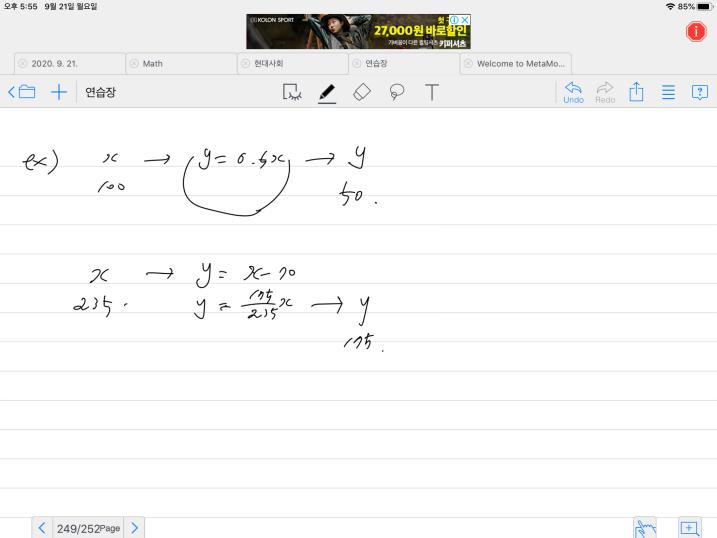 오후 5:55 9월 21일 월요일
85%
KOLON SPORT
27,000원 바로할인
2020. 9. 21.
Math
현대사회
연습장
Welcome to MetaMo...
연습장
T
Undo
Redo
ex) x → y = 0.5x → y
100
50.
x → y = x -
235.
y = 175/235 x → y
175.
249/252Page